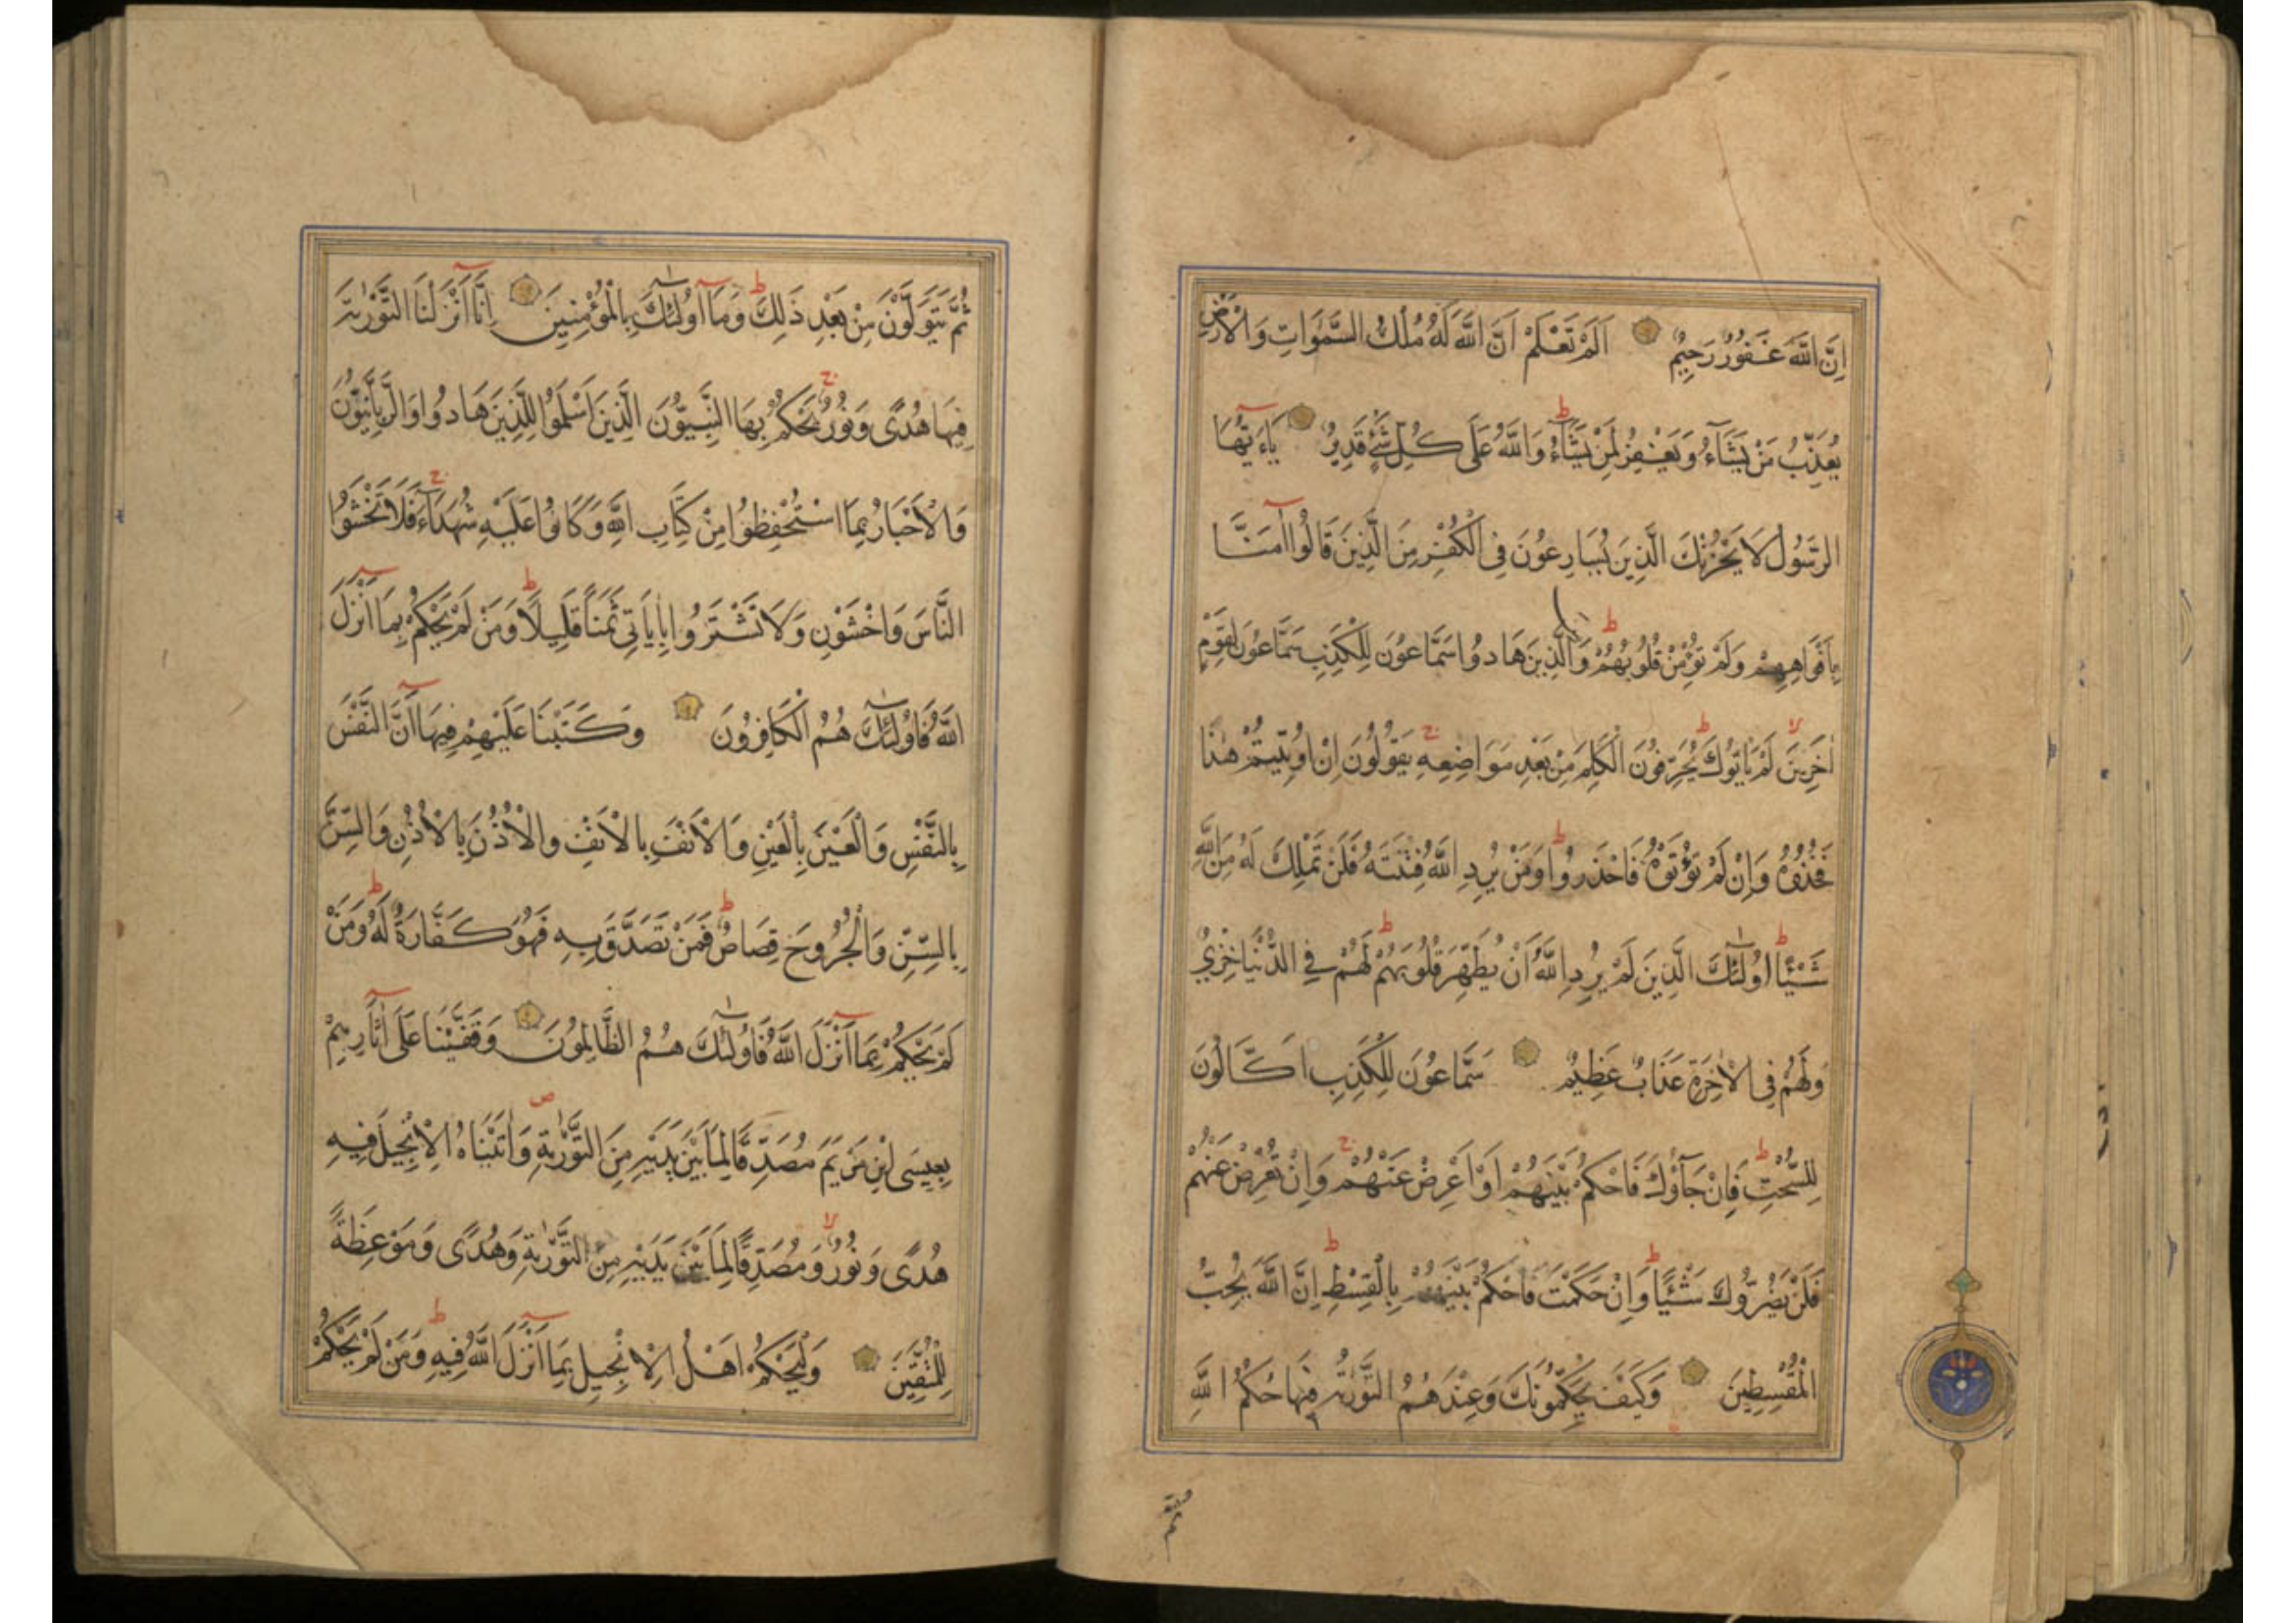 اِنَّ اللّٰهَ غَفُورٌ رَحِيمٌ اَلَمْ تَعْلَمْ اَنَّ اللّٰهَ لَهُ مُلْكُ السَّمٰوَاتِ وَالْاَرْضِ
يُعَذِّبُ مَنْ يَشَآءُ وَيَغْفِرُ لِمَنْ يَشَآءُ وَاللّٰهُ عَلٰى كُلِّ شَيْءٍ قَدِيرٌ يَاءَيُّهَا
الرَّسُولُ لَا يَحْزُنْكَ الَّذِينَ يُسَارِعُونَ فِي الْكُفْرِ مِنَ الَّذِينَ قَالُوا اٰمَنَّا
بِاَفْوَاهِهِمْ وَلَمْ تُؤْمِنْ قُلُوبُهُمْ وَالَّذِينَ هَادُوا سَمَّاعُونَ لِلْكَذِبِ سَمَّاعُونَ لِقَوْمٍ
اٰخَرِينَ لَمْ يَاْتُوكَ يُحَرِّفُونَ الْكَلِمَ مِنْ بَعْدِ مَوَاضِعِهِ يَقُولُونَ اِنْ اُوتِيتُمْ هٰذَا
فَخُذُوهُ وَاِنْ لَمْ تُؤْتَوْهُ فَاحْذَرُوا وَمَنْ يُرِدِ اللّٰهُ فِتْنَتَهُ فَلَنْ تَمْلِكَ لَهُ مِنَ اللّٰهِ
شَيْئًا اُولٰئِكَ الَّذِينَ لَمْ يُرِدِ اللّٰهُ اَنْ يُطَهِّرَ قُلُوبَهُمْ لَهُمْ فِي الدُّنْيَا خِزْيٌ
وَلَهُمْ فِي الْاٰخِرَةِ عَذَابٌ عَظِيمٌ سَمَّاعُونَ لِلْكَذِبِ اَكَّالُونَ
لِلسُّحْتِ فَاِنْ جَآؤُكَ فَاحْكُمْ بَيْنَهُمْ اَوْ اَعْرِضْ عَنْهُمْ وَاِنْ تُعْرِضْ عَنْهُمْ
فَلَنْ يَضُرُّوكَ شَيْئًا وَاِنْ حَكَمْتَ فَاحْكُمْ بَيْنَهُمْ بِالْقِسْطِ اِنَّ اللّٰهَ يُحِبُّ
الْمُقْسِطِينَ وَكَيْفَ يُحَكِّمُونَكَ وَعِنْدَهُمُ التَّوْرٰيةُ فِيهَا حُكْمُ اللّٰهِ
ثُمَّ يَتَوَلَّوْنَ مِنْ بَعْدِ ذَلِكَ وَمَآ اُولٰئِكَ بِالْمُؤْمِنِينَ اِنَّآ اَنْزَلْنَا التَّوْرٰيةَ
فِيهَا هُدًى وَنُورٌ يَحْكُمُ بِهَا النَّبِيُّونَ الَّذِينَ اَسْلَمُوا لِلَّذِينَ هَادُوا وَالرَّبَّانِيُّونَ
وَالْاَحْبَارُ بِمَا اسْتُحْفِظُوا مِنْ كِتَابِ اللّٰهِ وَكَانُوا عَلَيْهِ شُهَدَآءَ فَلَا تَخْشَوُا
النَّاسَ وَاخْشَوْنِ وَلَا تَشْتَرُوا بِاٰيَاتِي ثَمَنًا قَلِيلًا وَمَنْ لَمْ يَحْكُمْ بِمَآ اَنْزَلَ
اللّٰهُ فَاُولٰئِكَ هُمُ الْكَافِرُونَ وَكَتَبْنَا عَلَيْهِمْ فِيهَآ اَنَّ النَّفْسَ
بِالنَّفْسِ وَالْعَيْنَ بِالْعَيْنِ وَالْاَنْفَ بِالْاَنْفِ وَالْاُذُنَ بِالْاُذُنِ وَالسِّنَّ
بِالسِّنِّ وَالْجُرُوحَ قِصَاصٌ فَمَنْ تَصَدَّقَ بِهِ فَهُوَ كَفَّارَةٌ لَهُ وَمَنْ
لَمْ يَحْكُمْ بِمَآ اَنْزَلَ اللّٰهُ فَاُولٰئِكَ هُمُ الظَّالِمُونَ وَقَفَّيْنَا عَلٰٓى اٰثَارِهِمْ
بِعِيسَى ابْنِ مَرْيَمَ مُصَدِّقًا لِمَا بَيْنَ يَدَيْهِ مِنَ التَّوْرٰيةِ وَاٰتَيْنَاهُ الْاِنْجِيلَ فِيهِ
هُدًى وَنُورٌ وَمُصَدِّقًا لِمَا بَيْنَ يَدَيْهِ مِنَ التَّوْرٰيةِ وَهُدًى وَمَوْعِظَةً
لِلْمُتَّقِينَ وَلْيَحْكُمْ اَهْلُ الْاِنْجِيلِ بِمَآ اَنْزَلَ اللّٰهُ فِيهِ وَمَنْ لَمْ يَحْكُمْ